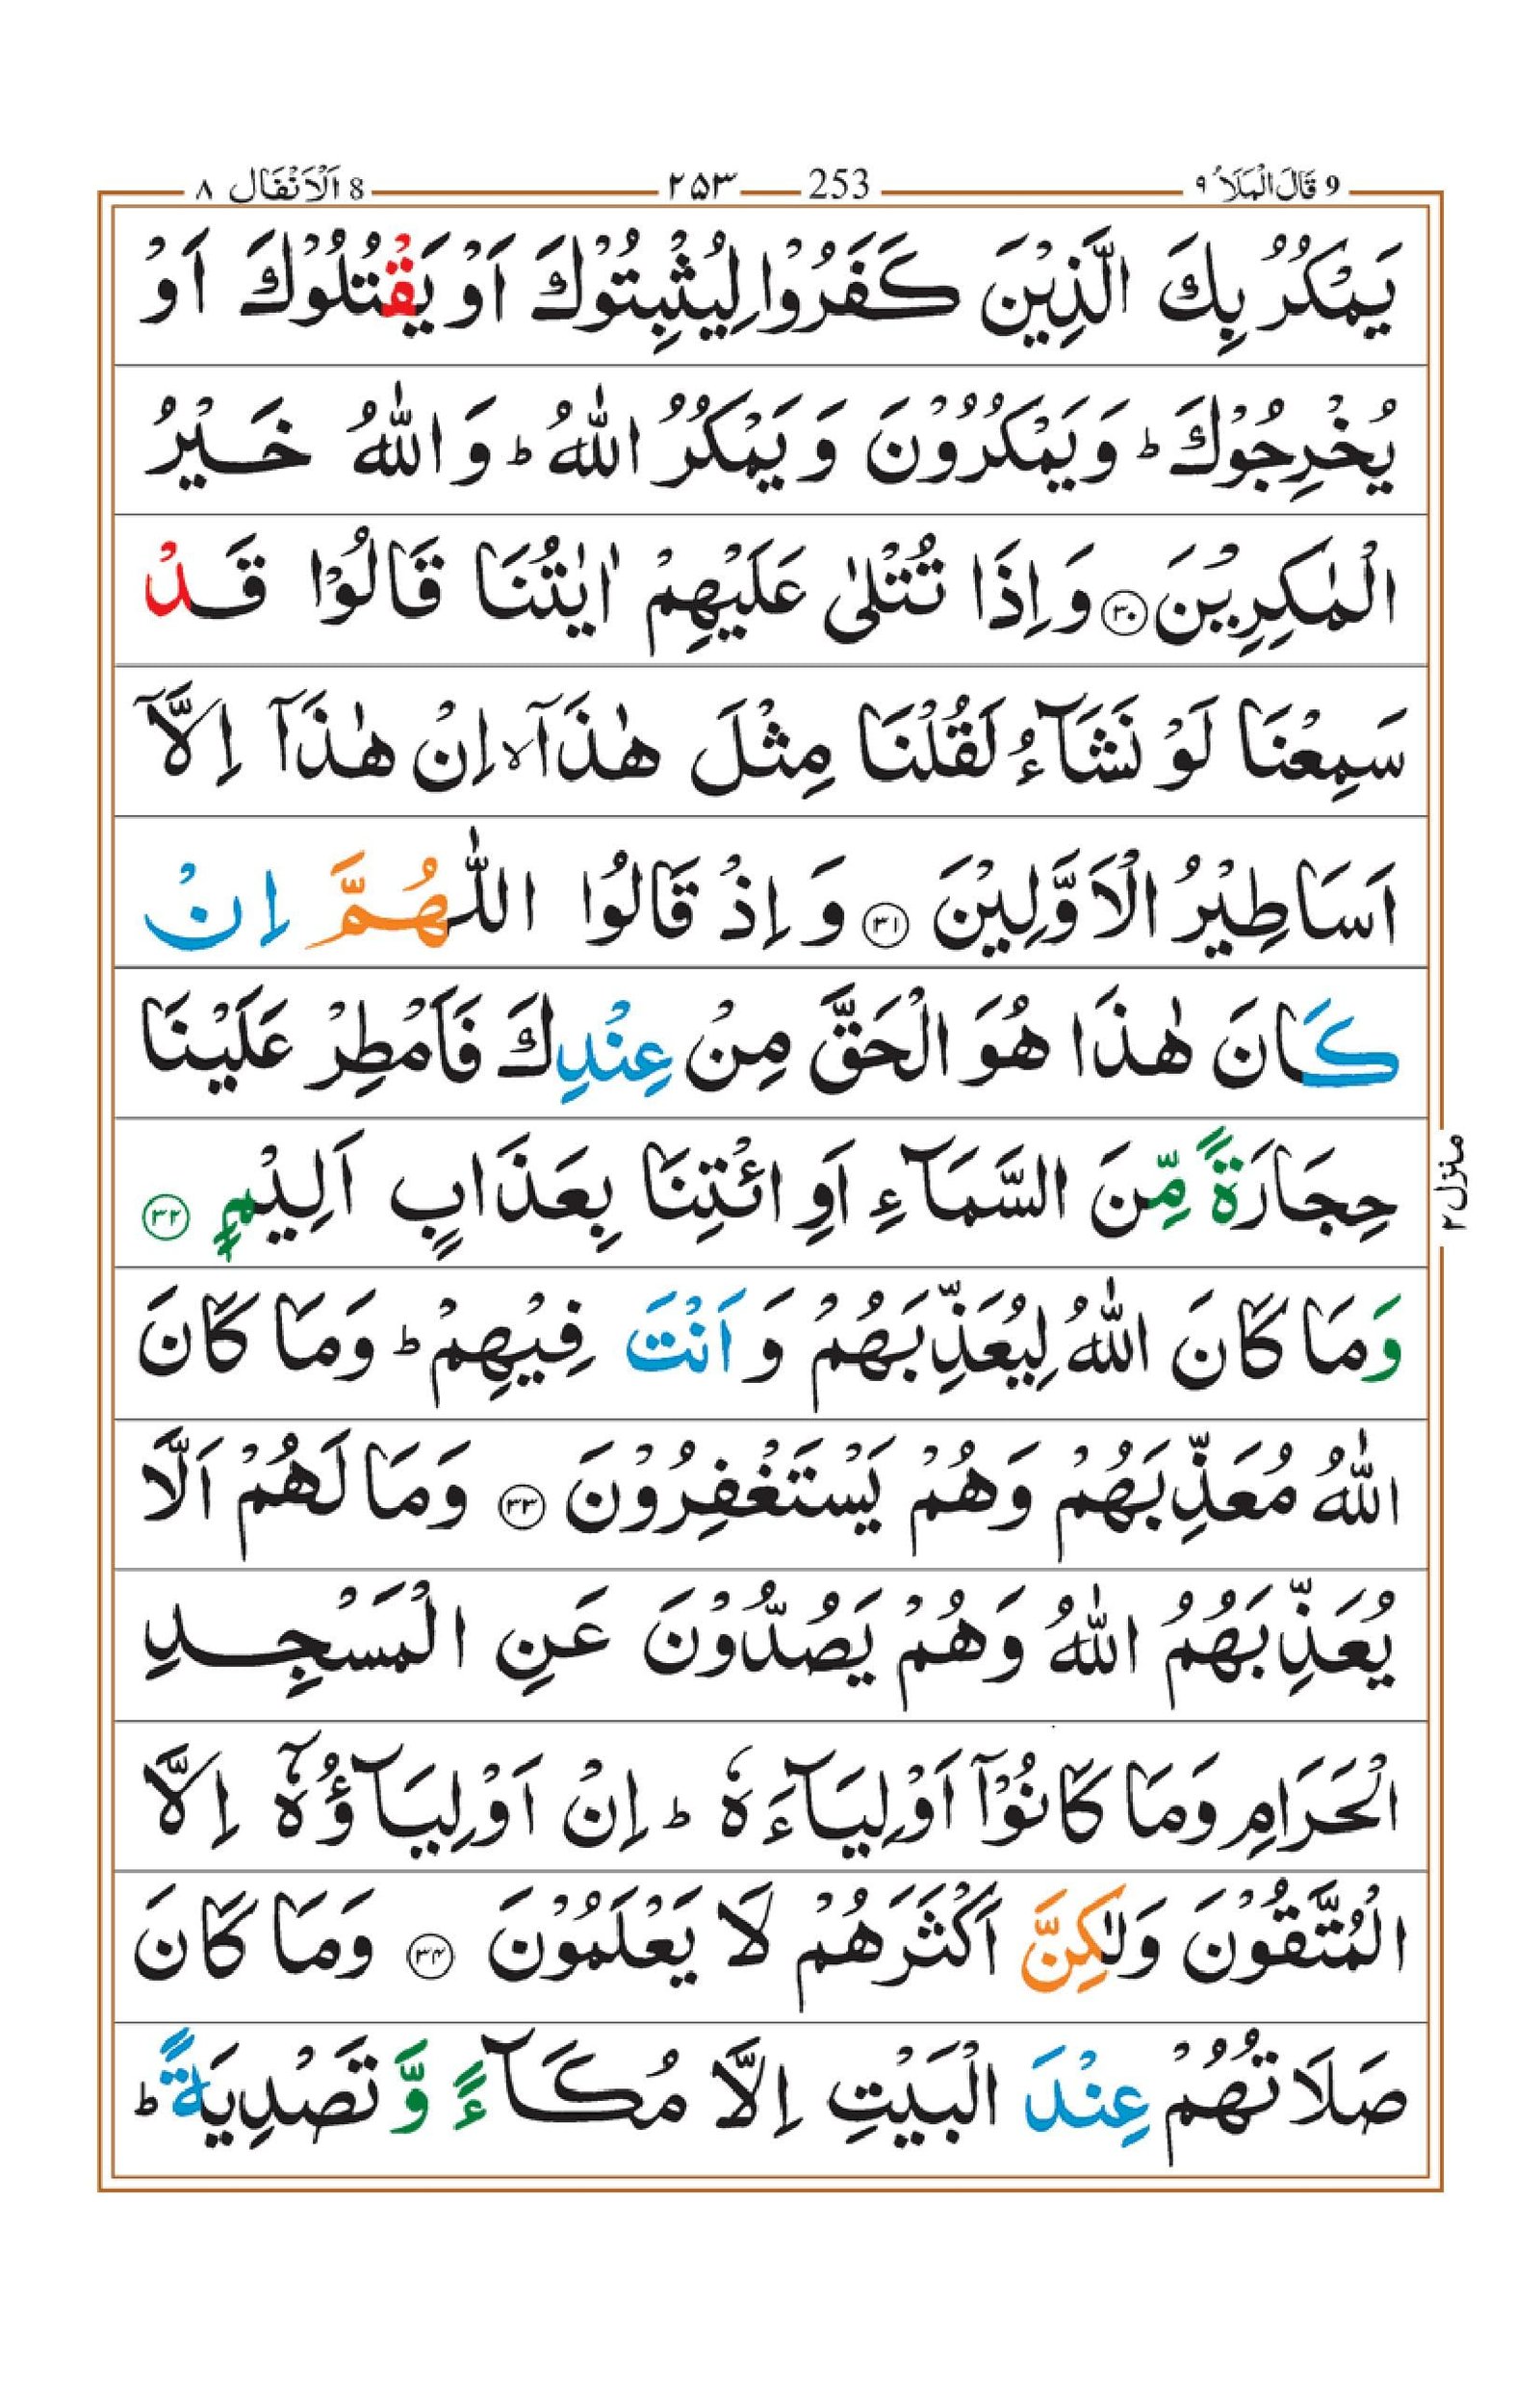 9 قَالَ الْمَلَاُ ٩ 253 ٢٥٣ 8 اَلْاَنْفَال ٨
يَمْكُرُ بِكَ الَّذِيْنَ كَفَرُوْا لِيُثْبِتُوْكَ اَوْ يَقْتُلُوْكَ اَوْ
يُخْرِجُوْكَ ؕ وَيَمْكُرُوْنَ وَيَمْكُرُ اللّٰهُ ؕ وَاللّٰهُ خَيْرُ
الْمٰكِرِيْنَ ﴿٣٠﴾ وَاِذَا تُتْلٰى عَلَيْهِمْ اٰيٰتُنَا قَالُوْا قَدْ
سَمِعْنَا لَوْ نَشَآءُ لَقُلْنَا مِثْلَ هٰذَآ ۙ اِنْ هٰذَآ اِلَّآ
اَسَاطِيْرُ الْاَوَّلِيْنَ ﴿٣١﴾ وَاِذْ قَالُوا اللّٰهُمَّ اِنْ
كَانَ هٰذَا هُوَ الْحَقَّ مِنْ عِنْدِكَ فَاَمْطِرْ عَلَيْنَا
حِجَارَةً مِّنَ السَّمَآءِ اَوِ ائْتِنَا بِعَذَابٍ اَلِيْمٍ ﴿٣٢﴾
منزل ٢
وَمَا كَانَ اللّٰهُ لِيُعَذِّبَهُمْ وَاَنْتَ فِيْهِمْ ؕ وَمَا كَانَ
اللّٰهُ مُعَذِّبَهُمْ وَهُمْ يَسْتَغْفِرُوْنَ ﴿٣٣﴾ وَمَا لَهُمْ اَلَّا
يُعَذِّبَهُمُ اللّٰهُ وَهُمْ يَصُدُّوْنَ عَنِ الْمَسْجِدِ
الْحَرَامِ وَمَا كَانُوْٓا اَوْلِيَآءَهٗ ؕ اِنْ اَوْلِيَآؤُهٗٓ اِلَّا
الْمُتَّقُوْنَ وَلٰكِنَّ اَكْثَرَهُمْ لَا يَعْلَمُوْنَ ﴿٣٤﴾ وَمَا كَانَ
صَلَاتُهُمْ عِنْدَ الْبَيْتِ اِلَّا مُكَآءً وَّتَصْدِيَةً ؕ